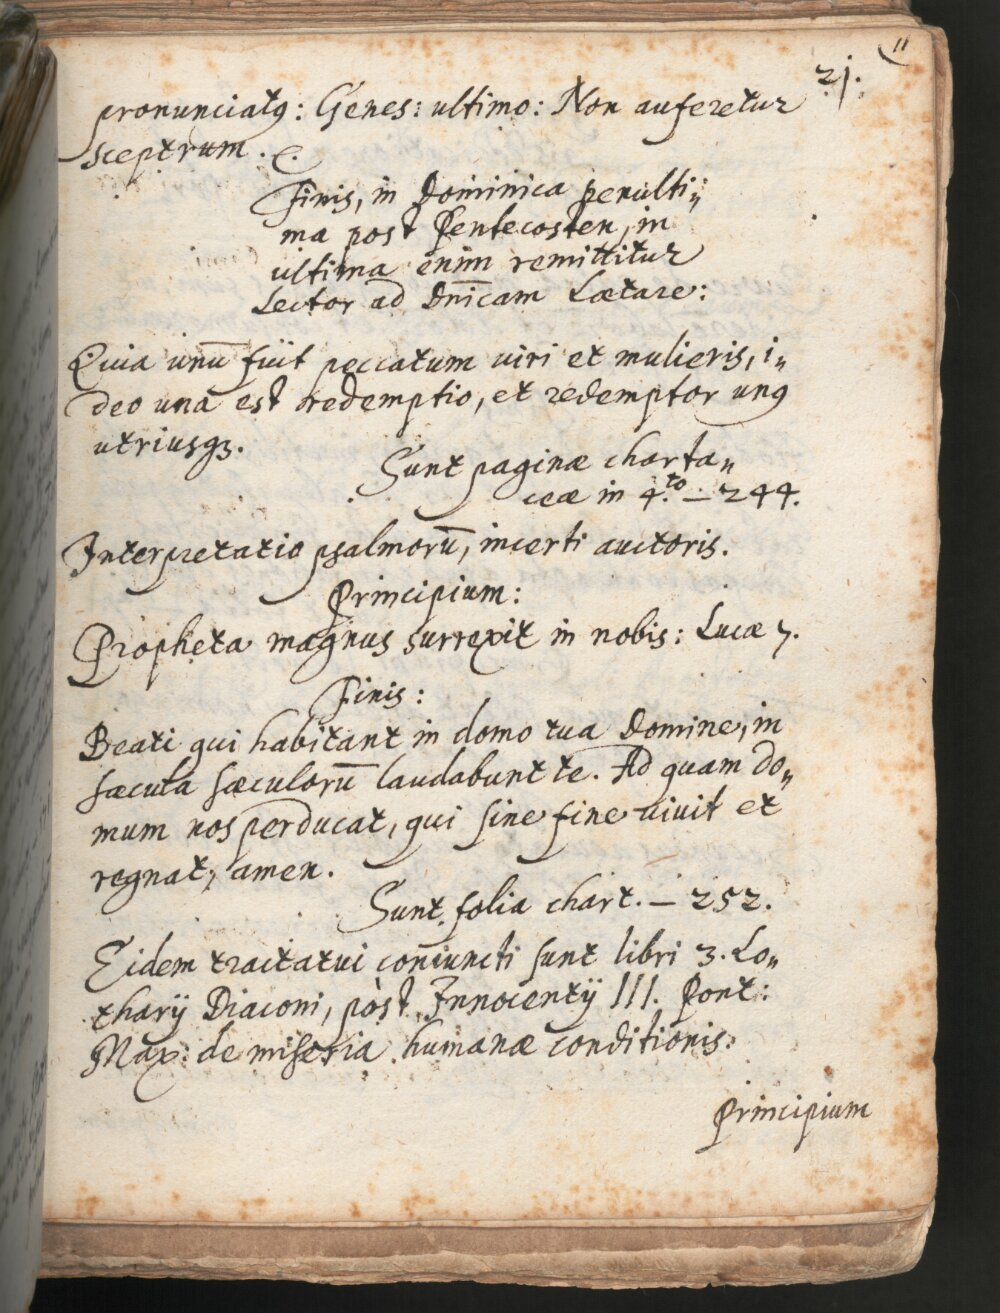 11
21.
pronunciatꝰ: Genes: ultimo: Non auferetur
sceptrum. &.
Finis, in Dominica penulti„
ma post Pentecosten, in
ultima enim remittitur
Lector ad Dnīcam Lætare:
Quia unū fuit peccatum viri et mulieris, i„
deo una est redemptio, et redemptor unꝰ
utriusqꝫ.
Sunt paginæ charta„
ceæ in 4.to — 244.
Interpretatio psalmorū, incerti auctoris.
Principium:
Propheta magnus surrexit in nobis: Lucæ 7.
Finis:
Beati qui habitant in domo tua Domine, in
sæcula sæculorū laudabunt te. Ad quam do„
mum nos perducat, qui sine fine vivit et
regnat, amen.
Sunt folia chart. — 252.
Eidem tractatui coniuncti sunt libri 3. Lo„
tharij Diaconi, pòst Innocentij III. Pont:
Max: de miseria humanæ conditionis:
Principium